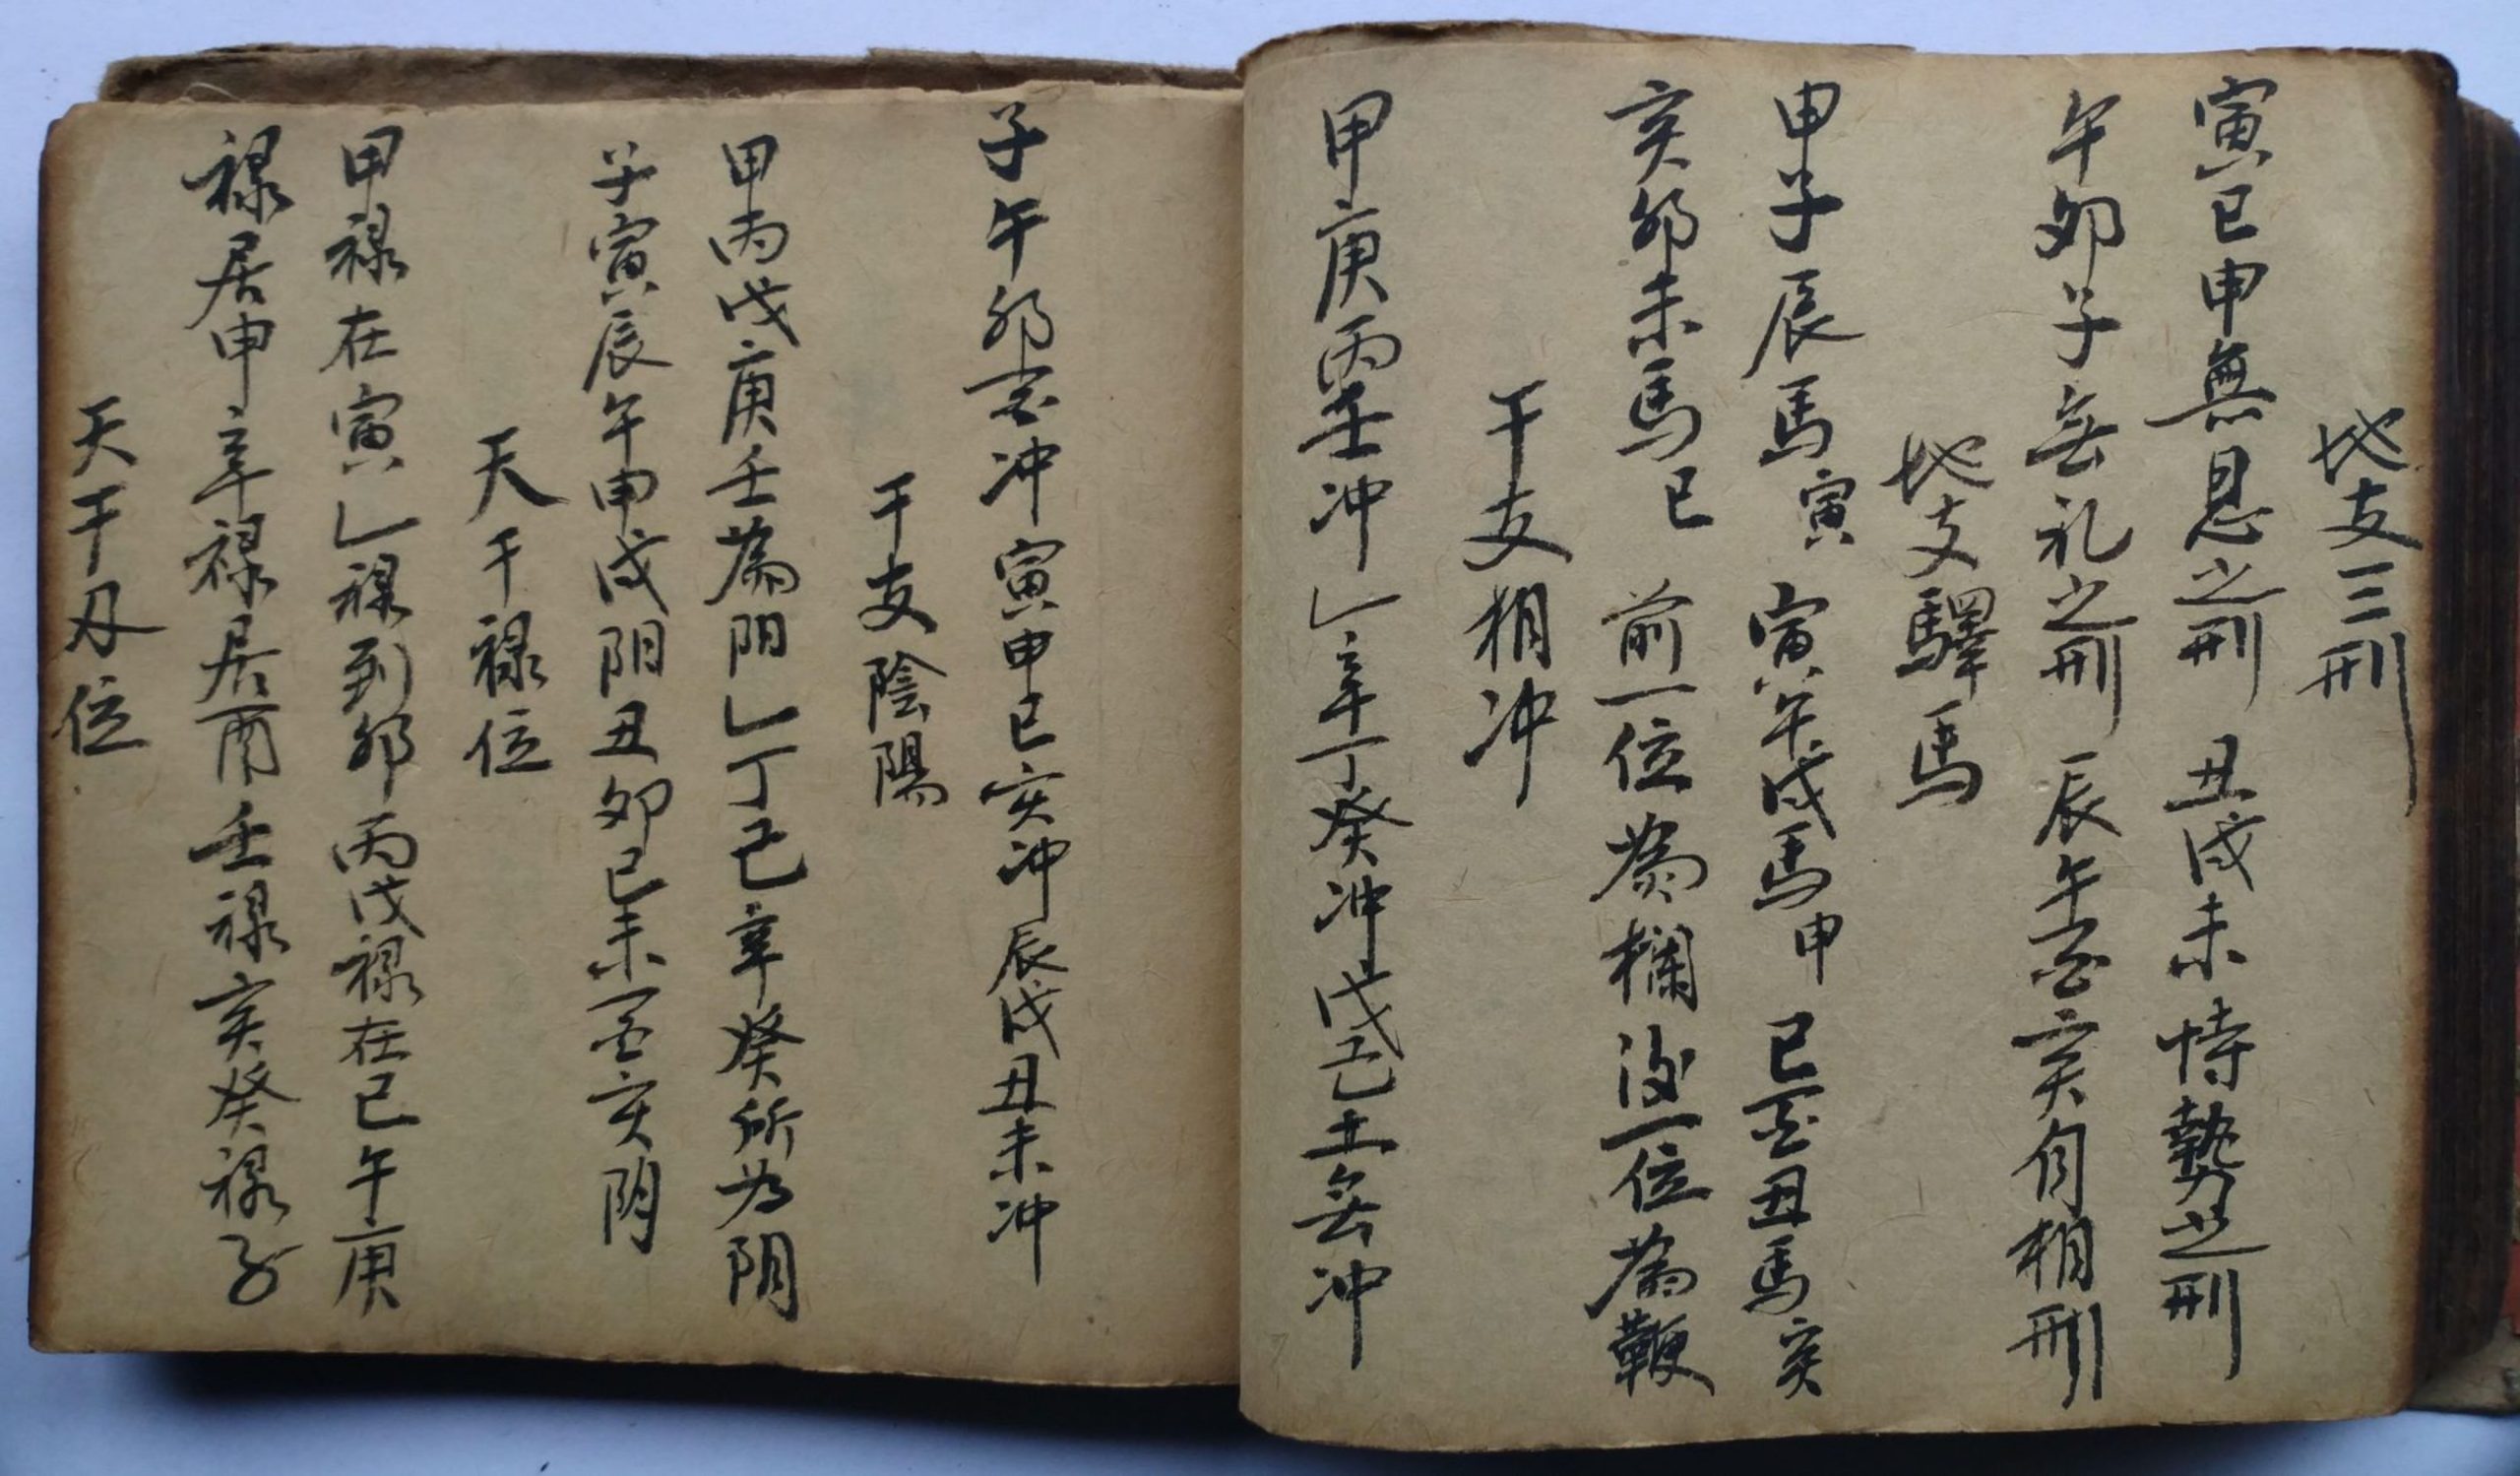 地支三刑
寅巳申無恩之刑 丑戌未恃勢之刑
午卯子无礼之刑 辰午酉亥自相刑
地支驛馬
申子辰馬寅 寅午戌馬申 巳酉丑馬亥
亥卯未馬巳 前一位為欄後一位為鞭
干支相冲
甲庚丙壬冲乚辛丁癸冲戊己土无冲
子午卯酉冲寅申巳亥冲辰戌丑未冲
干支陰陽
甲丙戊庚壬為阳乚丁己辛癸所为阴
子寅辰午申戌阳丑卯巳未酉亥阴
天干禄位
甲禄在寅乚禄到卯丙戊禄在巳午庚
禄居申辛禄居酉壬禄亥癸禄子
天干刄位